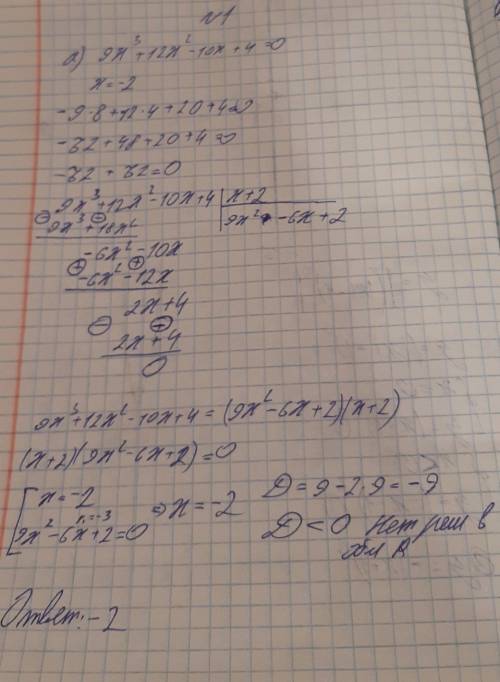 №1
а) 9x³+12x²-10x+4=0
x=-2
-9·8+12·4+20+4=0
-72+48+20+4=0
-72+72=0
9x³+12x²-10x+4 | x+2
9x³+18x² | 9x²-6x+2
-6x²-10x
-6x²-12x
2x+4
2x+4
0
9x³+12x²-10x+4=(9x²-6x+2)(x+2)
(x+2)(9x²-6x+2)=0
[ x=-2 ⇒ x=-2 D=9-2·9=-9
9x²-6x+2=0 D<0 Нет реш в
обл R
Ответ: -2